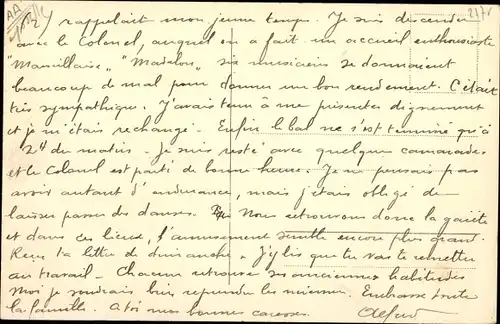 y rappelait mon jeune temps. Je suis descendu
avec le Colonel, auquel on a fait un accueil enthousiaste
"Marseillaise" "Madelon" six musiciens se donnaient
beaucoup de mal pour donner un bon rendement. C'était
très sympathique. J'avais tenu à me présenter dignement
et je m'étais rechangé. Enfin le bal ne s'est terminé qu'à
2H du matin. Je suis resté avec quelques camarades
et le Colonel est parti de bonne heure. Je ne pensais pas
avoir autant d'endurance, mais j'étais obligé de
laisser passer des danses. Nous retrouvons donc la gaieté
et dans ces lieux, l'amusement semble encore plus grand.
Reçu ta lettre de dimanche. J'y lis que tu vas te remettre
au travail. Chacun retrouve ses anciennes habitudes
Moi je voudrais bien reprendre les miennes. Embrasse toute
la famille. A toi mes bonnes caresses. Alfred